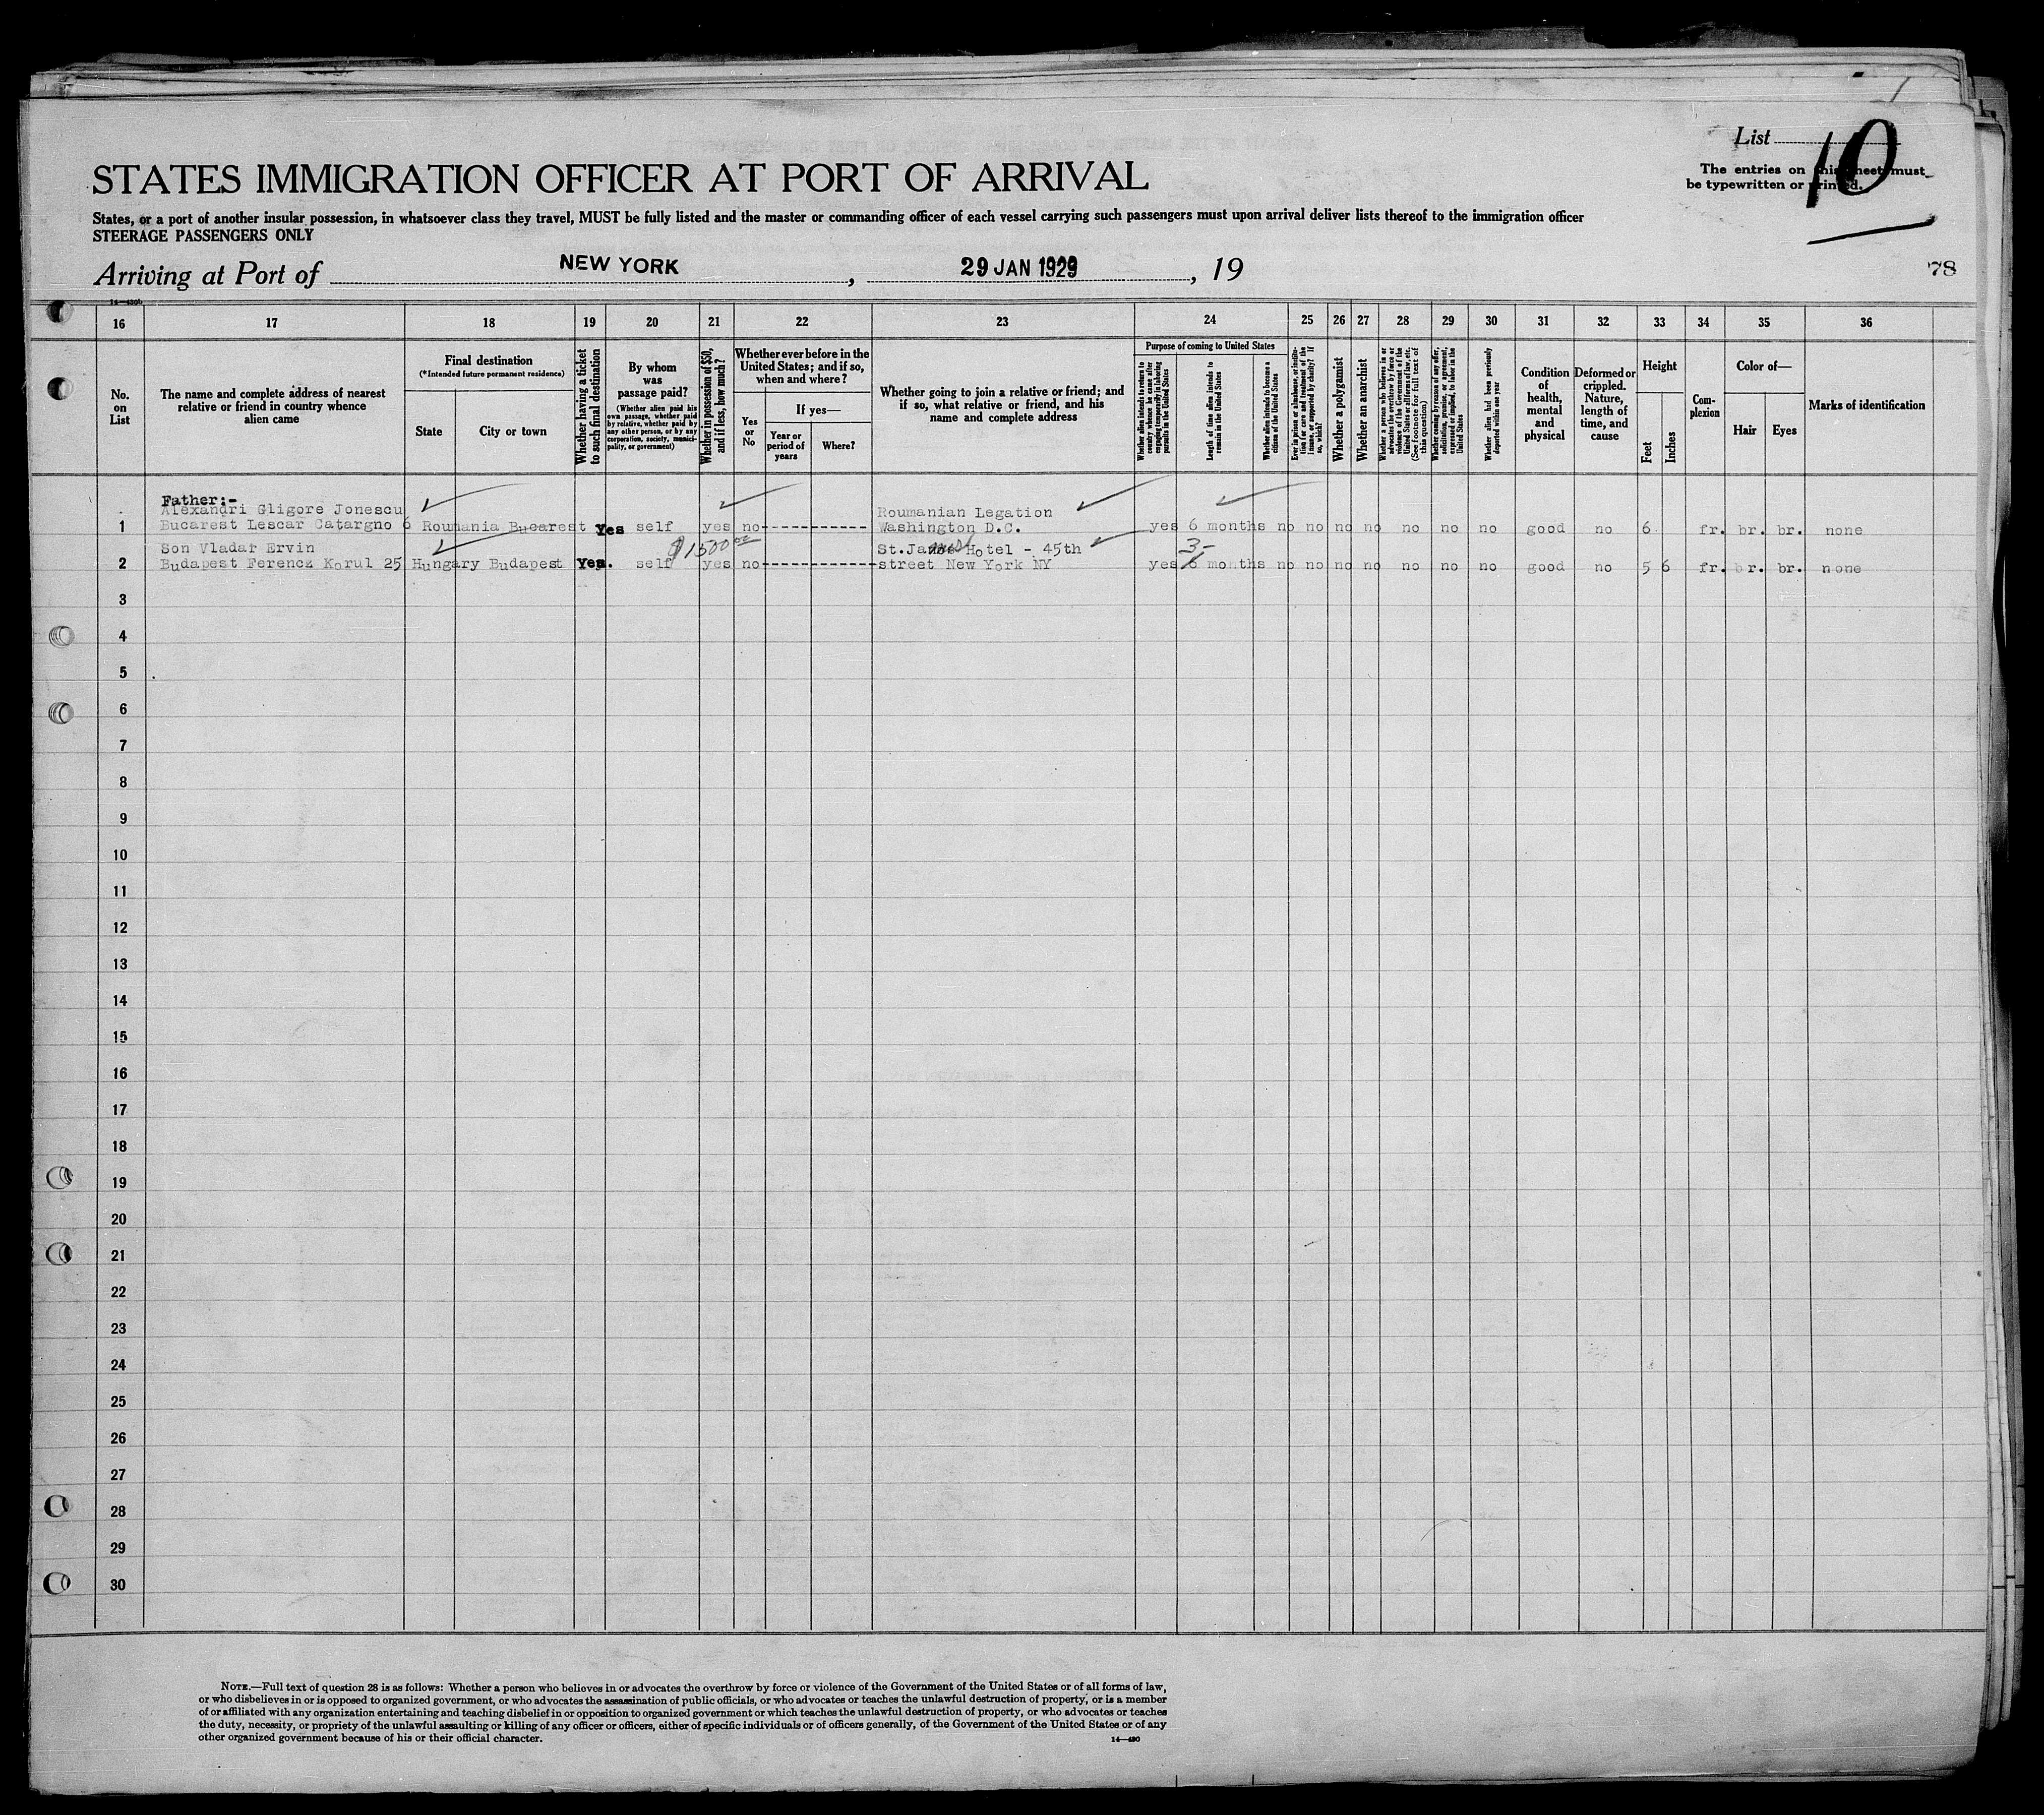 List 10
The entries on this sheet must
be typewritten or printed.
STATES IMMIGRATION OFFICER AT PORT OF ARRIVAL
States, or a port of another insular possession, in whatsoever class they travel, MUST be fully listed and the master or commanding officer of each vessel carrying such passengers must upon arrival deliver lists thereof to the immigration officer
STEERAGE PASSENGERS ONLY
Arriving at Port of NEW YORK, 29 JAN 1929, 19
78
14—430b
16 17 18 19 20 21 22 23 24 25 26 27 28 29 30 31 32 33 34 35 36
No.
on
List
The name and complete address of nearest
relative or friend in country whence
alien came
Final destination
(*Intended future permanent residence)
State
City or town
Whether having a ticket
to such final destination
By whom
was
passage paid?
(Whether alien paid his
own passage, whether paid
by relative, whether paid by
any other person, or by any
corporation, society, munici-
pality, or government)
Whether in possession of $50,
and if less, how much?
Whether ever before in the
United States; and if so,
when and where?
Yes
or
No
If yes—
Year or
period of
years
Where?
Whether going to join a relative or friend; and
if so, what relative or friend, and his
name and complete address
Purpose of coming to United States
Whether alien intends to return to
country whence he came after
engaging temporarily in laboring
pursuits in the United States
Length of time alien intends to
remain in the United States
Whether alien intends to become a
citizen of the United States
Ever in prison or almshouse, or institu-
tion for care and treatment of the
insane, or supported by charity? If
so, which?
Whether a polygamist
Whether an anarchist
Whether a person who believes in or
advocates the overthrow by force or
violence of the Government of the
United States or all forms of law, etc.
(See footnote for full text of
this question)
Whether coming by reason of any offer,
solicitation, promise, or agreement,
expressed or implied, to labor in the
United States
Whether alien had been previously
deported within one year
Condition
of
health,
mental
and
physical
Deformed or
crippled.
Nature,
length of
time, and
cause
Height
Feet
Inches
Com-
plexion
Color of—
Hair
Eyes
Marks of identification
Father:-
Alexandri Gligore Jonescu Roumanian Legation
1 Bucarest Lescar Catargno 6 Roumania Bucarest Yes self yes no------------ Washington D.C. yes 6 months no no no no no no no good no 6 fr. br. br. none
Son Vladar Ervin $1500.00 St.James Hotel - 45th 3-
2 Budapest Ferencz Korul 25 Hungary Budapest Yes. self yes no------------- street New York NY yes 6 months no no no no no no no good no 5 6 fr. br. br. none
3
4
5
6
7
8
9
10
11
12
13
14
15
16
17
18
19
20
21
22
23
24
25
26
27
28
29
30
NOTE.—Full text of question 28 is as follows: Whether a person who believes in or advocates the overthrow by force or violence of the Government of the United States or of all forms of law,
or who disbelieves in or is opposed to organized government, or who advocates the assassination of public officials, or who advocates or teaches the unlawful destruction of property, or is a member
of or affiliated with any organization entertaining and teaching disbelief in or opposition to organized government or which teaches the unlawful destruction of property, or who advocates or teaches
the duty, necessity, or propriety of the unlawful assaulting or killing of any officer or officers, either of specific individuals or of officers generally, of the Government of the United States or of any
other organized government because of his or their official character.
14—430